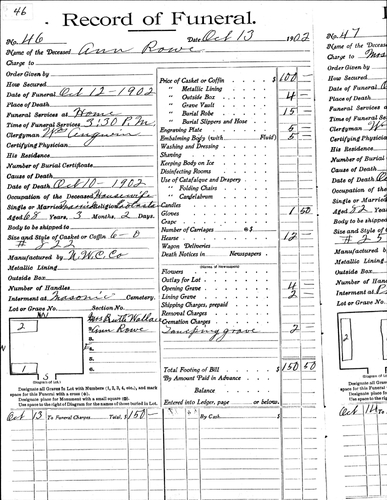 46
Record of Funeral.
No. 46 Date Oct 13 1902
Name of the Deceased Ann Rowe
Charge to
Order Given by
How Secured
Date of Funeral Oct 12-1902
Place of Death
Funeral Services at Home
Time of Funeral Services 3:30 P.M.
Clergyman Wm Angwin
Certifying Physician
His Residence
Number of Burial Certificate
Cause of Death
Date of Death Oct 10-1902
Occupation of the Deceased Housewife
Single or Married
Aged 68 Years, 3 Months, 2 Days.
Body to be shipped to
Size and Style of Casket or Coffin 6-0
# 822
Manufactured by N.W.C. Co
Metallic Lining
Outside Box
Number of Handles
Interment at Masonic Cemetery.
Lot or Grave No. Section No.
2
1
N
S
Mrs Ruth Wallace
Ann Rowe
(Diagram of Lot.)
Designate all Graves in Lot with Numbers (1, 2, 3, 4, etc.), and mark
space for this Funeral with a cross (+).
Designate place for Monument with a small square (□).
Use space to the right of Diagram for the names of those buried in Lot.
Oct 13 To Funeral Charges, Total, $ 150 —
Price of Casket or Coffin $ 100 —
" Metallic Lining
" Outside Box 4 —
" Grave Vault
" Burial Robe 15 —
" Burial Slippers and Hose
Engraving Plate 5 —
Embalming Body (with Fluid) 5 —
Washing and Dressing
Shaving
Keeping Body on Ice
Disinfecting Rooms
Use of Catafalque and Drapery
" Folding Chairs
" Candelabrum
Candles
Gloves 1 50
Crape
Number of Carriages @ $
Hearse 12 —
Wagon Deliveries
Death Notices in Newspapers
Flowers
Outlay for Lot
Opening Grave 4 —
Lining Grave 2 —
Shipping Charges, prepaid
Removal Charges
Cremation Charges
2 —
Total Footing of Bill $ 150 50
By Amount Paid in Advance
Balance
Entered into Ledger, page or below.
By Cash $
47
No. 47
Name of the
Charge to
Order Given
How Secured
Date of Funeral
Place of Death
Funeral Ser
Time of Funeral
Clergyman
Certifying
His Residence
Number of
Cause of De
Date of Death
Occupation
Single or M
Aged 82
Body to be
Size and Sty
Manufactured
Metallic Li
Outside Box
Number of
Interment a
Lot or Grave
2
Oct 14